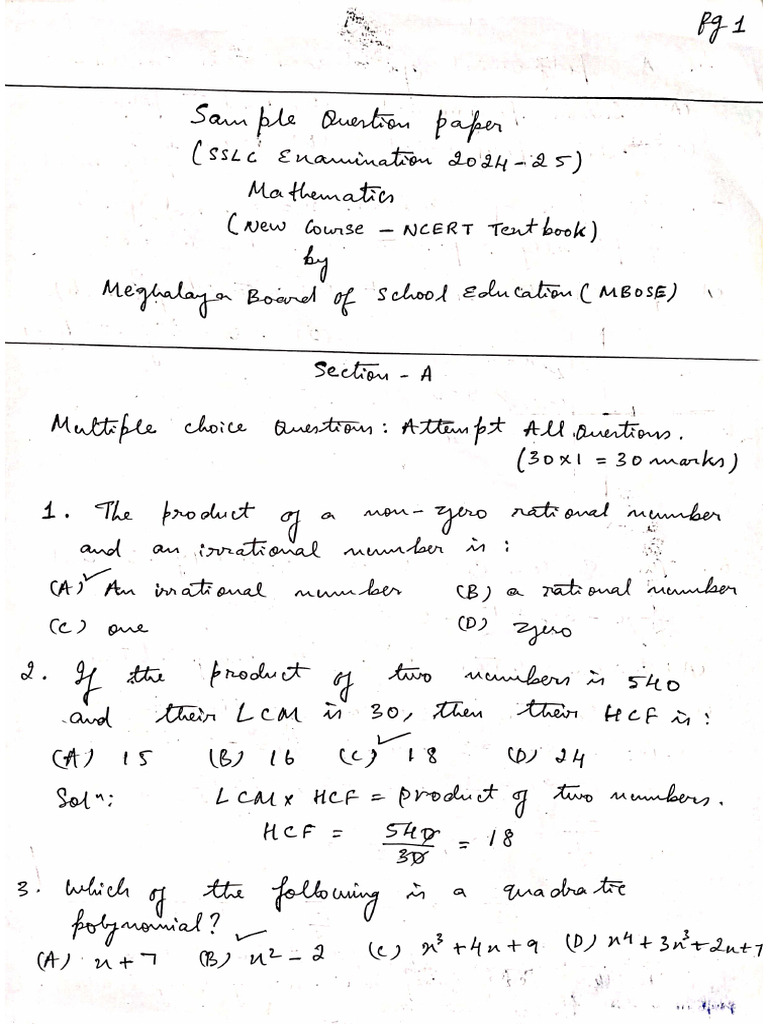 Pg 1
Sample Question paper
(SSLC Examination 2024-25)
Mathematics
(New Course - NCERT Textbook)
by
Meghalaya Board of School Education (MBOSE)
Section - A
Multiple choice Questions: Attempt All Questions.
(30x1 = 30 marks)
1. The product of a non-zero rational number
and an irrational number is:
(A) ✓ An irrational number (B) a rational number
(C) one (D) zero
2. If the product of two numbers is 540
and their LCM is 30, then their HCF is:
(A) 15 (B) 16 (C) ✓ 18 (D) 24
Solⁿ: LCM x HCF = product of two numbers.
HCF = 540/30 = 18
3. Which of the following is a quadratic
polynomial?
(A) x + 7 (B) ✓ x² - 2 (C) x³ + 4x + 9 (D) x⁴ + 3x³ + 2x + 7